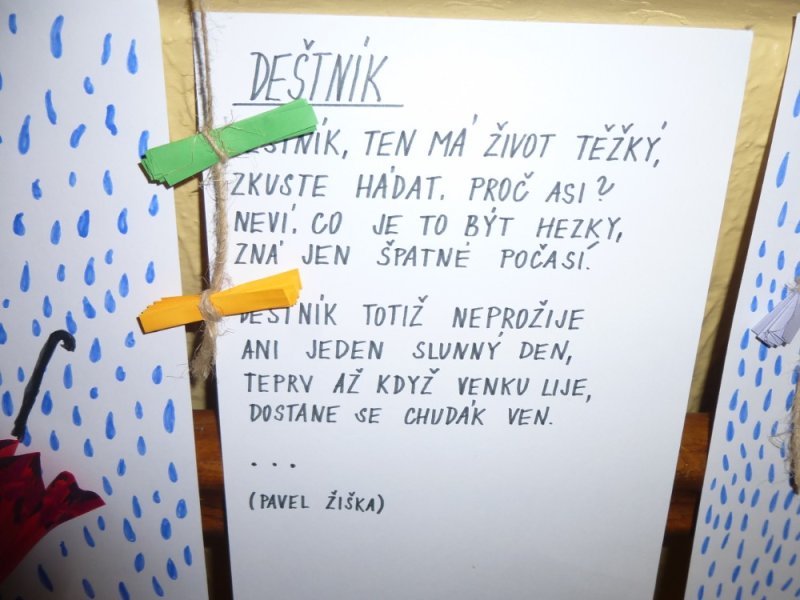 DEŠTNÍK
DEŠTNÍK, TEN MÁ ŽIVOT TĚŽKÝ,
ZKUSTE HÁDAT. PROČ ASI?
NEVÍ. CO JE TO BÝT HEZKY,
ZNÁ JEN ŠPATNÉ POČASÍ.
DEŠTNÍK TOTIŽ NEPROŽIJE
ANI JEDEN SLUNNÝ DEN,
TEPRV AŽ KDYŽ VENKU LIJE,
DOSTANE SE CHUDÁK VEN.
...
(PAVEL ŽIŠKA)